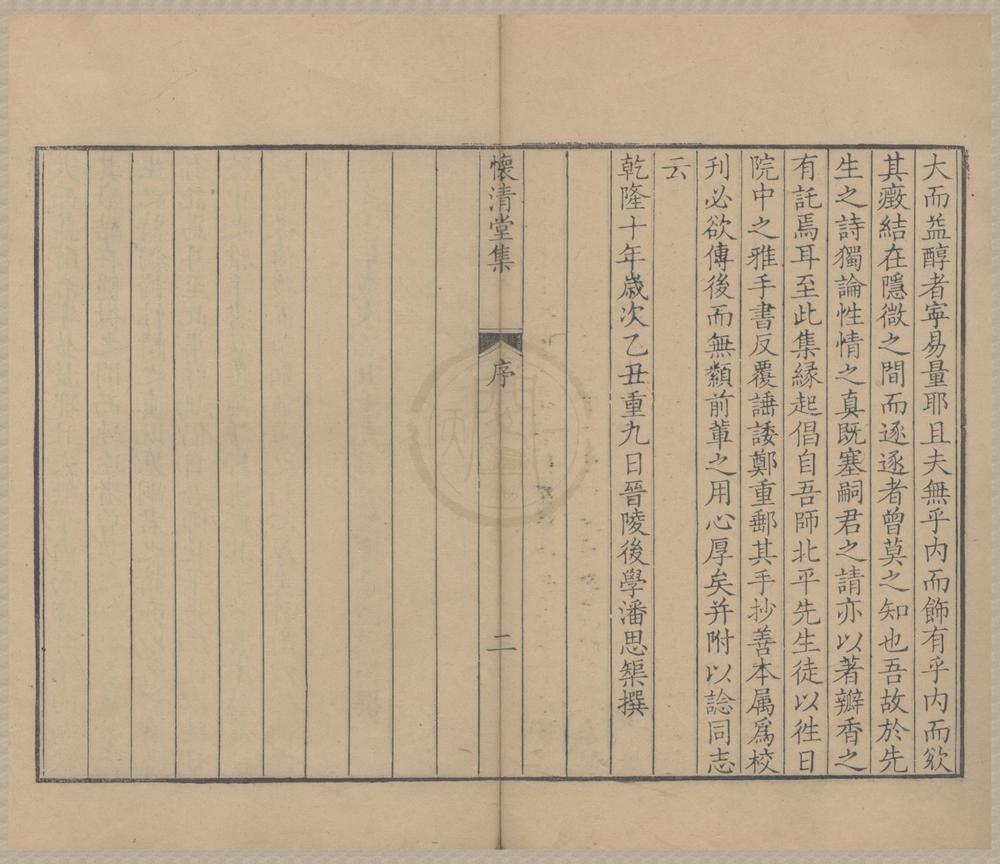 大而益醇者寧易量耶且夫無乎内而飾有乎内而欲
其癥結在隱微之間而逐逐者曾莫之知也吾故於先
生之詩獨論性情之真既塞嗣君之請亦以著瓣香之
有託焉耳至此集縁起倡自吾師北平先生徒以徃日
院中之雅手書反覆諈諉鄭重郵其手抄善本属爲校
刋必欲傳後而無纇前軰之用心厚矣并附以諗同志
云
乾隆十年歲次乙丑重九日晉陵後學潘思榘撰
懷清堂集
序
二